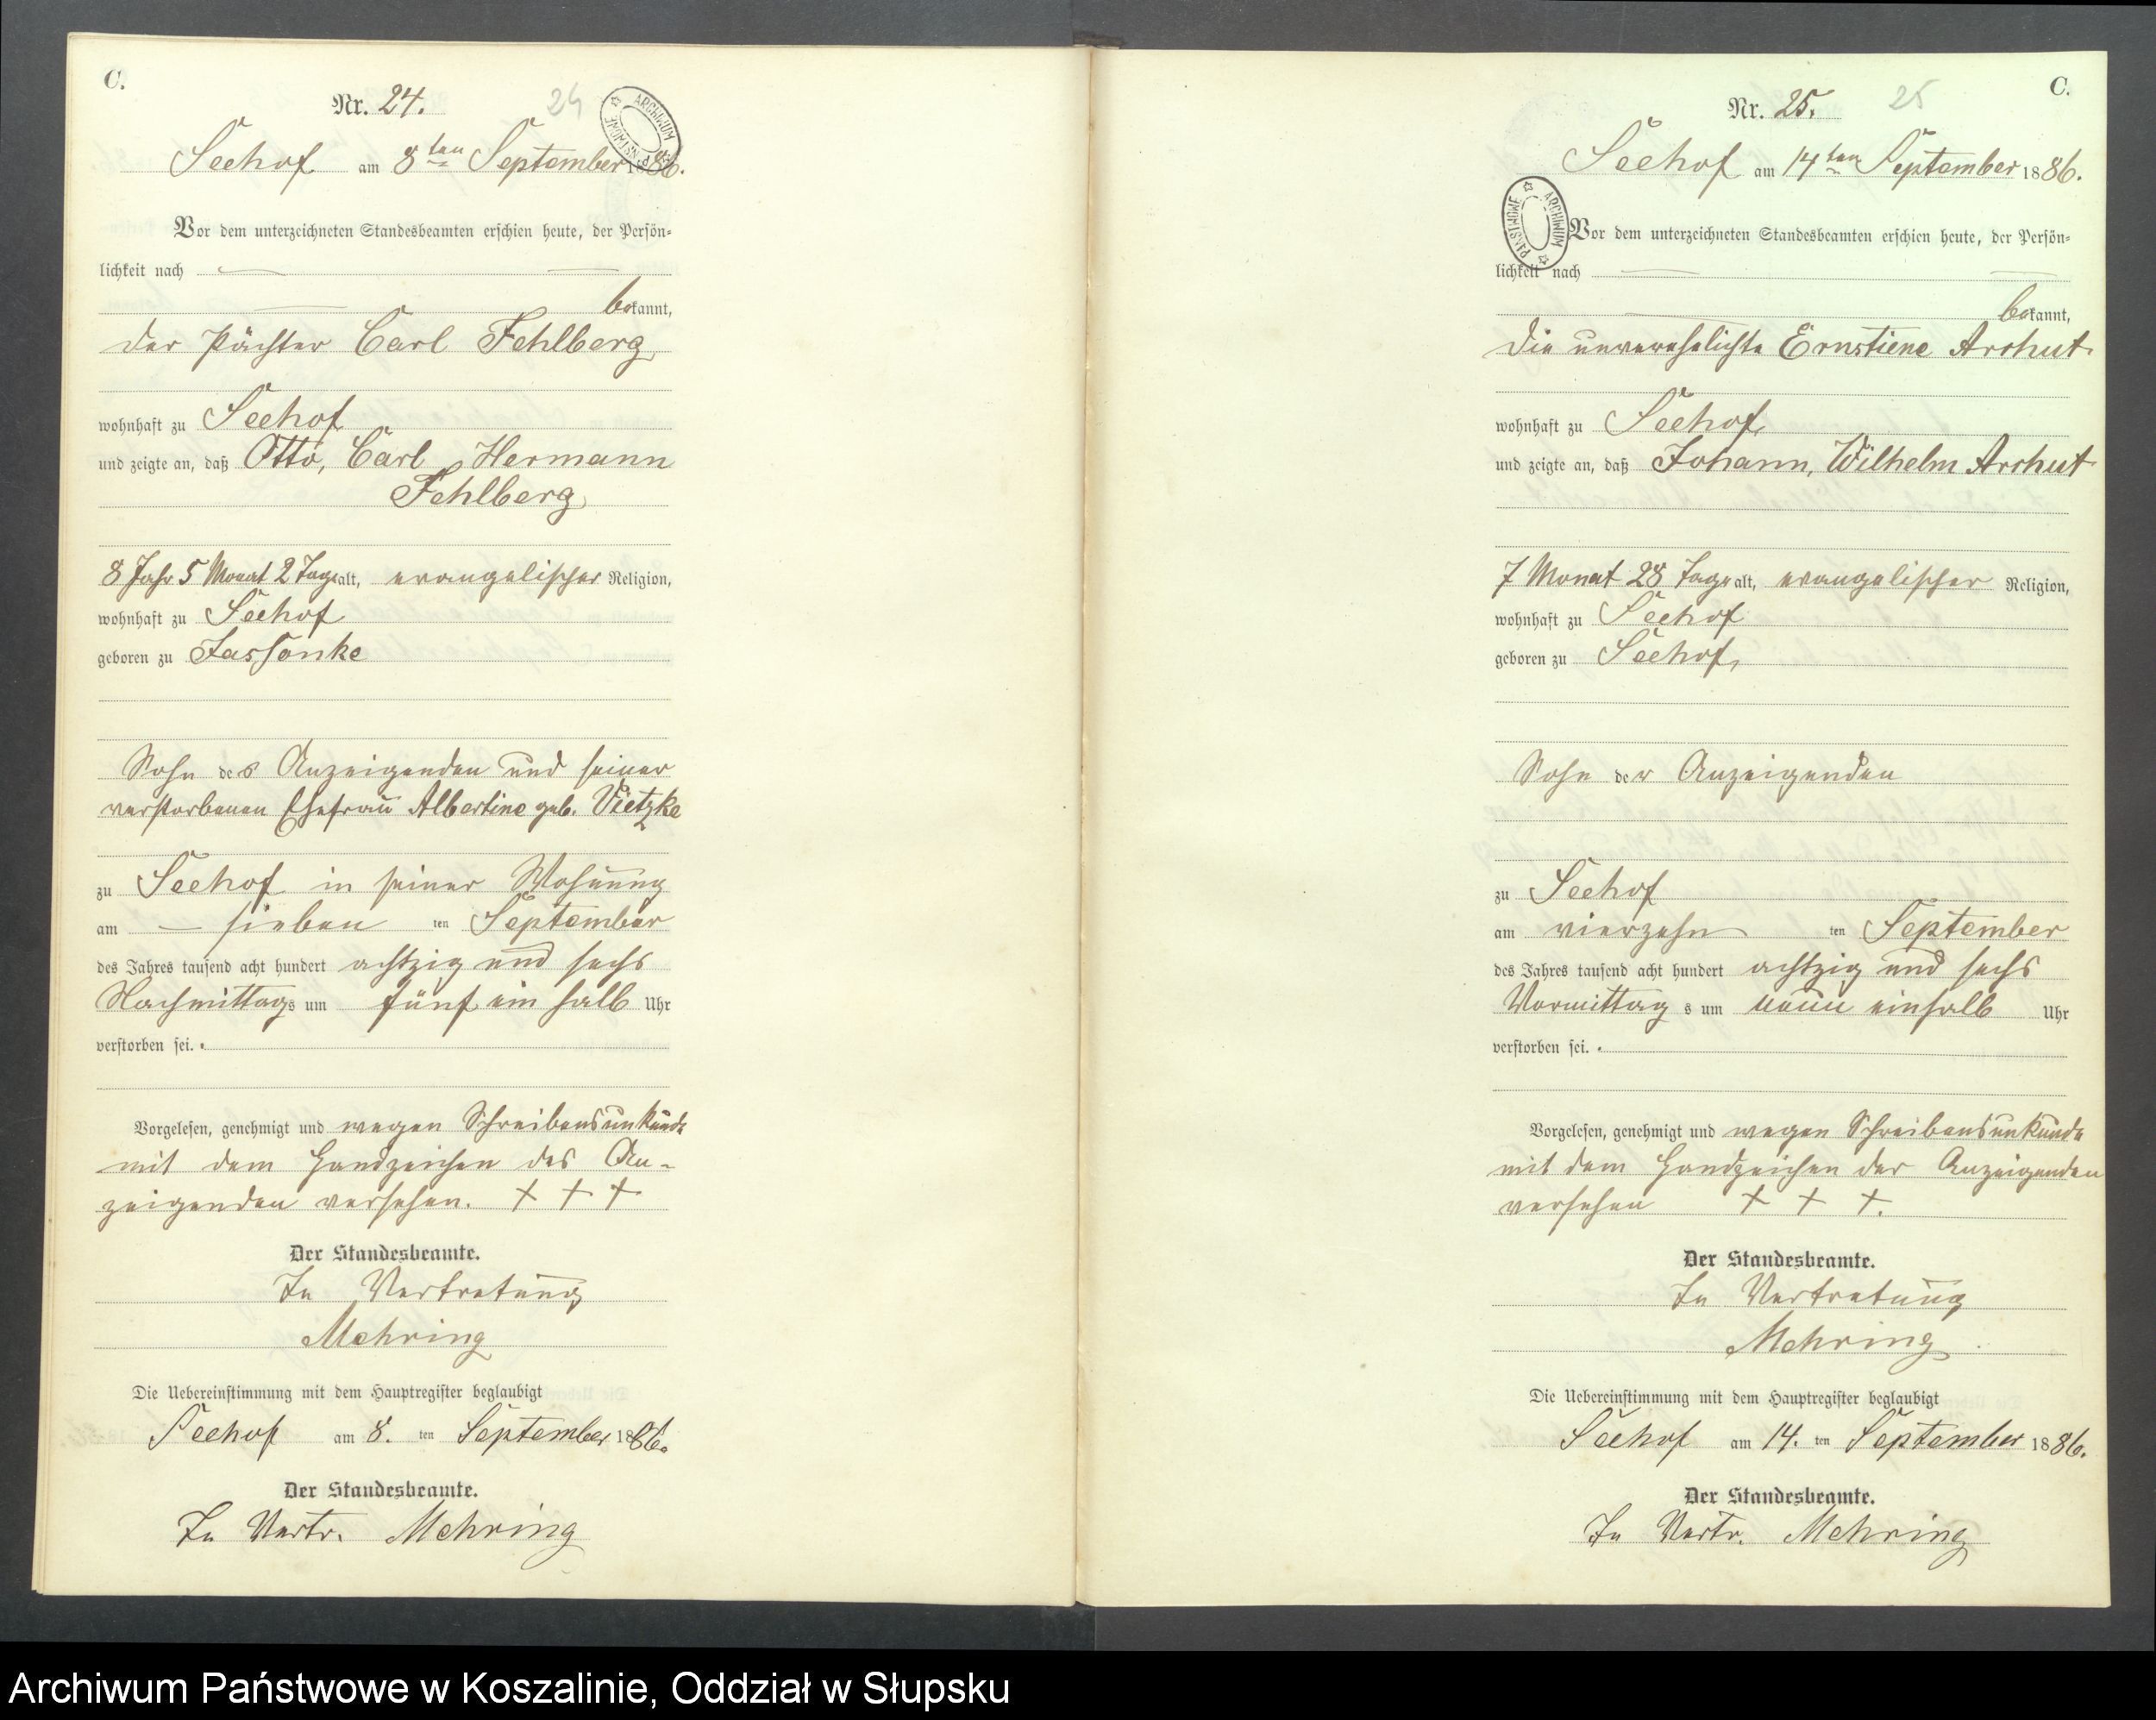 C.
Nr. 24.
24
ARCHIWUM PAŃSTWOWE
Seehof am 8ten September 1886.
Vor dem unterzeichneten Standesbeamten erschien heute, der Persön-
lichkeit nach
bekannt,
der Pächter Carl Fehlberg
wohnhaft zu Seehof
und zeigte an, daß Otto, Carl Hermann
Fehlberg
8 Jahr 5 Monat 2 Tage alt, evangelischer Religion,
wohnhaft zu Seehof
geboren zu Jassonke
Sohn des Anzeigenden und seiner
verstorbenen Ehefrau Albertine geb. Vietzke
zu Seehof in seiner Wohnung
am sieben ten September
des Jahres tausend acht hundert achtzig und sechs
Nachmittags um fünf ein halb Uhr
verstorben sei.
Vorgelesen, genehmigt und wegen Schreibensunkunde
mit dem Handzeichen des An-
zeigenden versehen. + + +
Der Standesbeamte.
In Vertretung
Mehring
Die Uebereinstimmung mit dem Hauptregister beglaubigt
Seehof am 8. ten September 1886.
Der Standesbeamte.
In Vertr. Mehring
C.
Nr. 25.
25
Seehof am 14ten September 1886.
ARCHIWUM PAŃSTWOWE
Vor dem unterzeichneten Standesbeamten erschien heute, der Persön-
lichkeit nach
bekannt,
die unverehelichte Ernstiene Arshut
wohnhaft zu Seehof,
und zeigte an, daß Johann, Wilhelm Arshut
7 Monat 28 Tage alt, evangelischer Religion,
wohnhaft zu Seehof
geboren zu Seehof,
Sohn der Anzeigenden
zu Seehof
am vierzehn ten September
des Jahres tausend acht hundert achtzig und sechs
Vormittags um neun einhalb Uhr
verstorben sei.
Vorgelesen, genehmigt und wegen Schreibensunkunde
mit dem Handzeichen der Anzeigenden
versehen + + +.
Der Standesbeamte.
In Vertretung
Mehring
Die Uebereinstimmung mit dem Hauptregister beglaubigt
Seehof am 14. ten September 1886.
Der Standesbeamte.
In Vertr. Mehring
Archiwum Państwowe w Koszalinie, Oddział w Słupsku